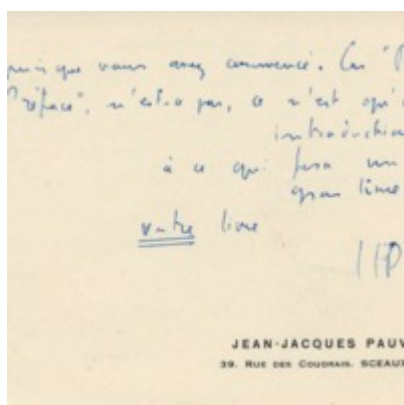 puisque vous avez commencé. Ces "P
Préface", n'est-ce pas, ce n'est qu'
introduction
à ce qui fera un
gros livre
votre livre
JJP
JEAN-JACQUES PAUV
39, RUE DES COUDRAIS. SCEAUX